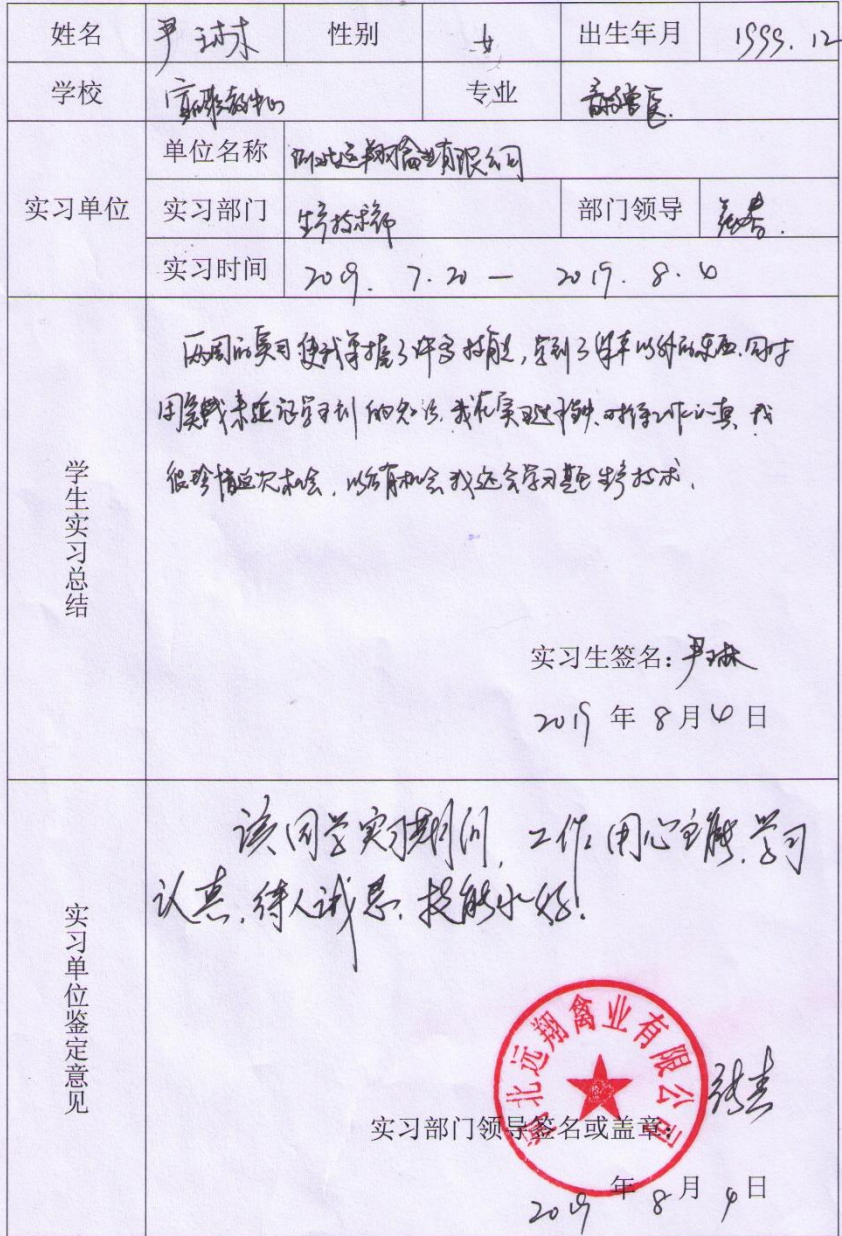 姓名 尹琳 性别 女 出生年月 1999.12
学校 职教中心 专业 畜牧兽医
单位名称 河北远翔禽业有限公司
实习单位 实习部门 生产技术部 部门领导
实习时间 2019. 7.20 — 2019. 8. 4
学生实习总结
两周的实习使我掌握了许多技能,学到了课本以外的东西.同时
用实践来验证学到的知识.我在实习过程中.对待工作认真.我
很珍惜这次机会.以后有机会我还会学习生产技术.
实习生签名:尹琳
2019 年 8 月 4 日
实习单位鉴定意见
该同学实习期间,工作用心主动.学习
认真.待人诚恳.技能水好!
河北远翔禽业有限公司
实习部门领导签名或盖章:
2019 年 8 月 4 日